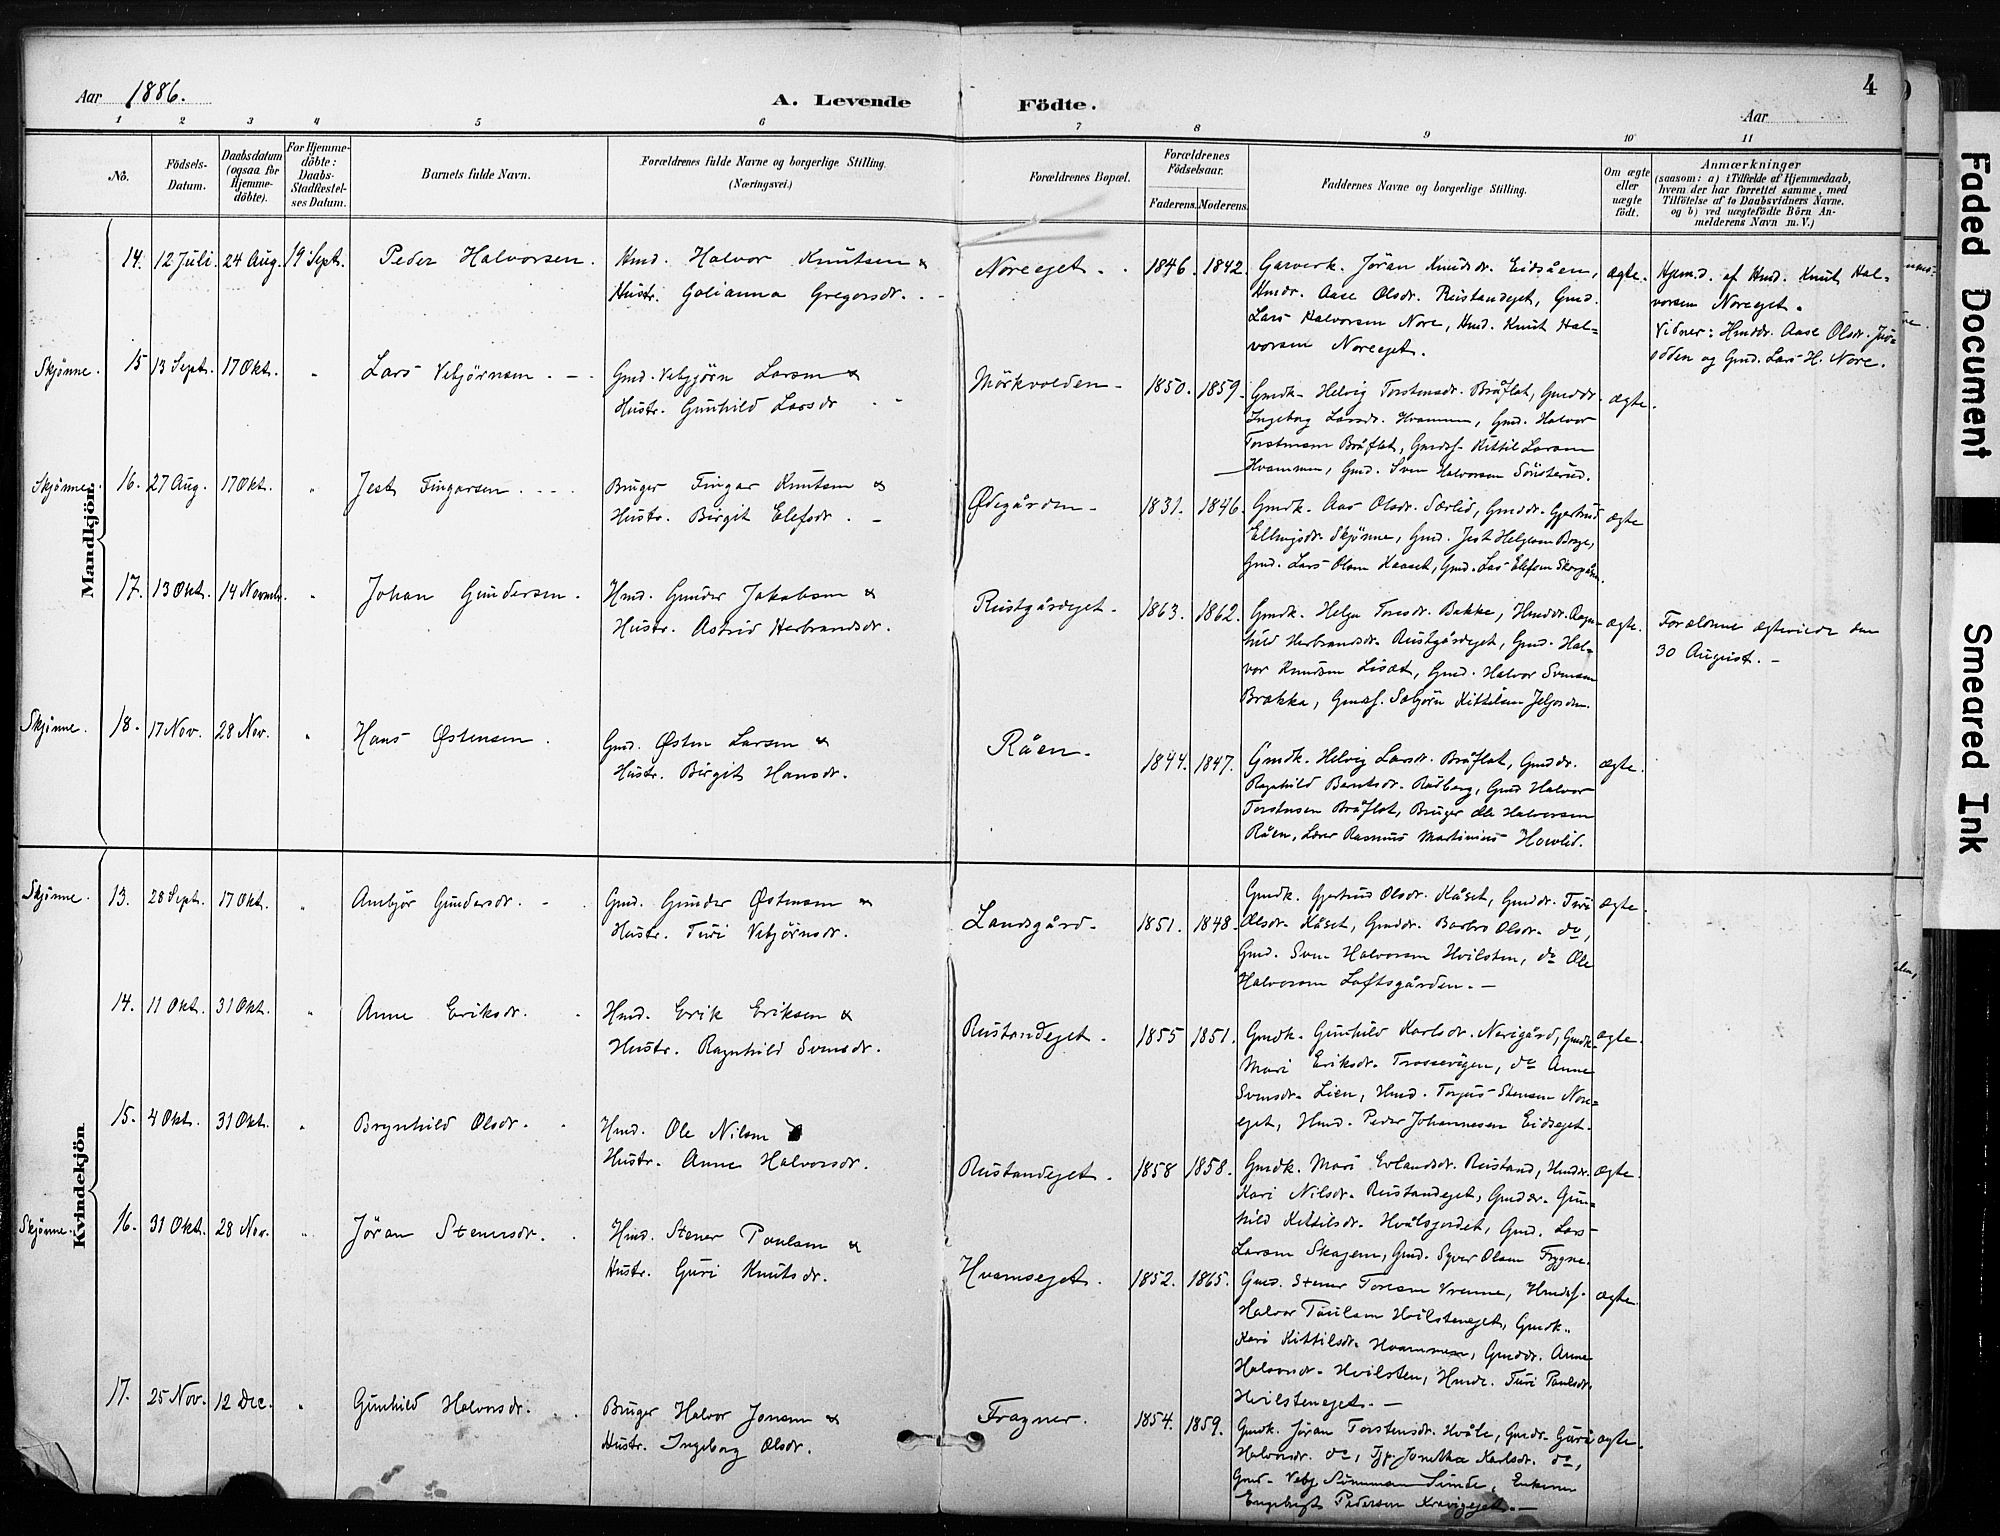 Aar 1886.
A. Levende Födte.
4
Aar
1 2 3 4 5 6 7 8 9 10 11
No.
Födsels-Datum.
Daabsdatum (ogsaa for Hjemme-döbte).
For Hjemme-döbte: Daabs-Stadfæstel-ses Datum.
Barnets fulde Navn.
Forældrenes fulde Navne og borgerlige Stilling. (Næringsvei.)
Forældrenes Bopæl.
Forældrenes Födselsaar.
Faderens. Moderens.
Faddernes Navne og borgerlige Stilling.
Om ægte eller uægte födt.
Anmærkninger
(saasom: a) i Tilfælde af Hjemmedaab,
hvem der har forrettet samme, med
Tilföielse af to Daabsvidners Navne.
og b) ved uægtefödte Börn An-
melderens Navn m. V.)
Mandkjön.
14. 12 Juli. 24 Aug. 19 Sept. Peder Halvorsen. Hmd. Halvor Knutsen &
Hustr. Golianna Gregorsdr.
Noreeget. 1846. 1842. Garverk. Jöran Knudsdr. Eidsåen,
Hmdr. Aase Olsdr. Rustandeget, Gmd.
Lars Halvorsen Nore, Hmd. Knut Hal=
vorsen Noreeget.
ægte.
Hjemd. af Hmd. Knut Hal=
vorsen Noreeget.
Vidner: Hmddr. Aase Olsdr.
og Gmd. Lars H. Nore.
Skjønne. 15 13 Sept. 17 Okt. " Lars Vebjörnsen. Gmd. Vebjörn Larsen &
Hustr. Gunhild Larsdr
Mörkvolden 1850. 1859. Gmdk. Helvig Torstensdr. Bråflat, Gmddr.
Ingeborg Larsdr. Hvammen, Gmd. Halvor
Torstensen Bråflat, Gmds. Kittil Larsen
Hvammen, Gmd. Sven Halvorsen Sönsterud.
ægte.
Skjønne. 16. 27 Aug. 17 Okt. " Jest Fingarsen. Bruger Fingar Knutsen &
Hustr. Birgit Elefsdr.
Ødegården 1831. 1846. Gmdk. Aas Olsdr. Særlid, Gmddr. Gjertrud
Ellingsdr. Skjønne, Gmd. Jest Helgesen Borge,
Gmd. Lars Olsen Kaaset, Gmd. Lars Elefsen
ægte
17. 13 Okt. 14 Novemb. " Johan Gundersen. Hmd. Gunder Jakobsen &
Hustr. Astrid Herbrandsdr.
Rustgårdeget. 1863. 1862. Gmdk. Helga Toresdr. Bakke, Hmddr. Ragn=
hild Herbrandsdr. Rustgårdeget, Gmd. Hal=
vor Knudsen Lisæt, Gmd. Halvor Svensen
Brække, Gmds. Sæbjörn Kittilsen
ægte.
Forældrene ægteviede den
30 August.
Skjønne. 18. 17 Nov. 28 Nov. " Hans Østensen. Gmd. Østen Larsen &
Hustr. Birgit Hansdr.
Råen. 1844. 1847. Gmdk. Helvig Larsdr. Bråflat, Gmddr.
Ragnhild Berntsdr. Rudberg, Gmd Halvor
Torstensen Bråflat, Bruger Ole Halvorsen
Råen, Lærer Rasmus Martinius Hovlid.
ægte.
Kvindekjön
Skjønne. 13. 28 Sept. 17 Okt. " Ambjör Gundersdr. Gmd. Gunder Østensen &
Hustr. Turi Vebjörnsdr.
Landsgård. 1851. 1848. Gmdk. Gjertrud Olsdr. Kåset, Gmddr. Turi
Olsdr. Kåset, Gmddr. Barbro Olsdr. do,
Gmd. Sven Halvorsen Hvilsten, do Ole
Halvorsen Loftsgården.
ægte.
14. 11 Okt. 31 Okt. " Anne Eriksdr. Hmd. Erik Eriksen &
Hustr. Ragnhild Svensdr.
Rustandeget. 1855 1851. Gmdk. Gunhild Karlsdr. Norigård, Gmdk.
Mari Eriksdr. do Anne
Svensdr. Lien, Hmd. Torjus Stensen Nore=
eget, Hmd. Peder Johannesen Eidseget.
ægte.
15. 4 Okt. 31 Okt. " Brynhild Olsdr. Hmd. Ole Nilsen &
Hustr. Anne Halvorsdr.
Rustandeget. 1858 1858. Gmdk. Mari Erlandsdr. Rustand, Hmdr.
Kari Nilsdr. Rustandeget, Gmddr. Gun=
hild Kittilsdr. Hvålsjordet, Gmd. Lars
Larsen Skagen, Gmd. Syver Olsen Frygne.
ægte.
Skjønne. 16. 31 Okt. 28 Nov. " Jöran Stenersdr. Hmd. Stener Paulsen &
Hustr. Guri Knutsdr.
Hvamseget. 1852. 1865. Gmd. Stener Toresen Vrenne, Hmds.
Halvor Paulsen Hvilsteneget, Gmdk.
Kari Kittilsdr. Hvammen, Gmddr. Anne
Halvorsdr. Hvilsten, Hmdr. Turi Paulsdr.
Hvilsteneget.
ægte.
17. 25 Nov. 12 Dec. " Gunhild Halvorsdr. Bruger Halvor Jonsen &
Hustr. Ingeborg Olsdr.
Fragner. 1854. 1859. Gmdk. Jöran Torstensdr. Hvåle, Gmdr. Guri
Halvorsdr. do, Jonetha Karlsdr. do,
Gmd. Enkem.
Engebregt Pedersen Kravigeget.
ægte.
Faded Document
Smeared Ink